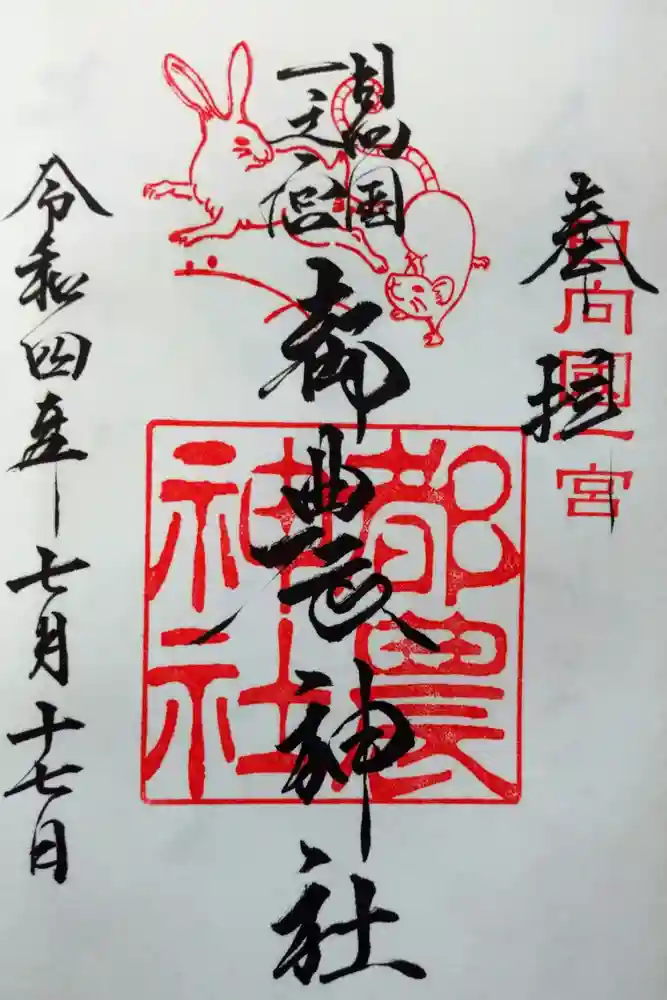 奉拝
日向國一宮
日向国
一之宮
都農神社
都農神社
令和四年七月十七日